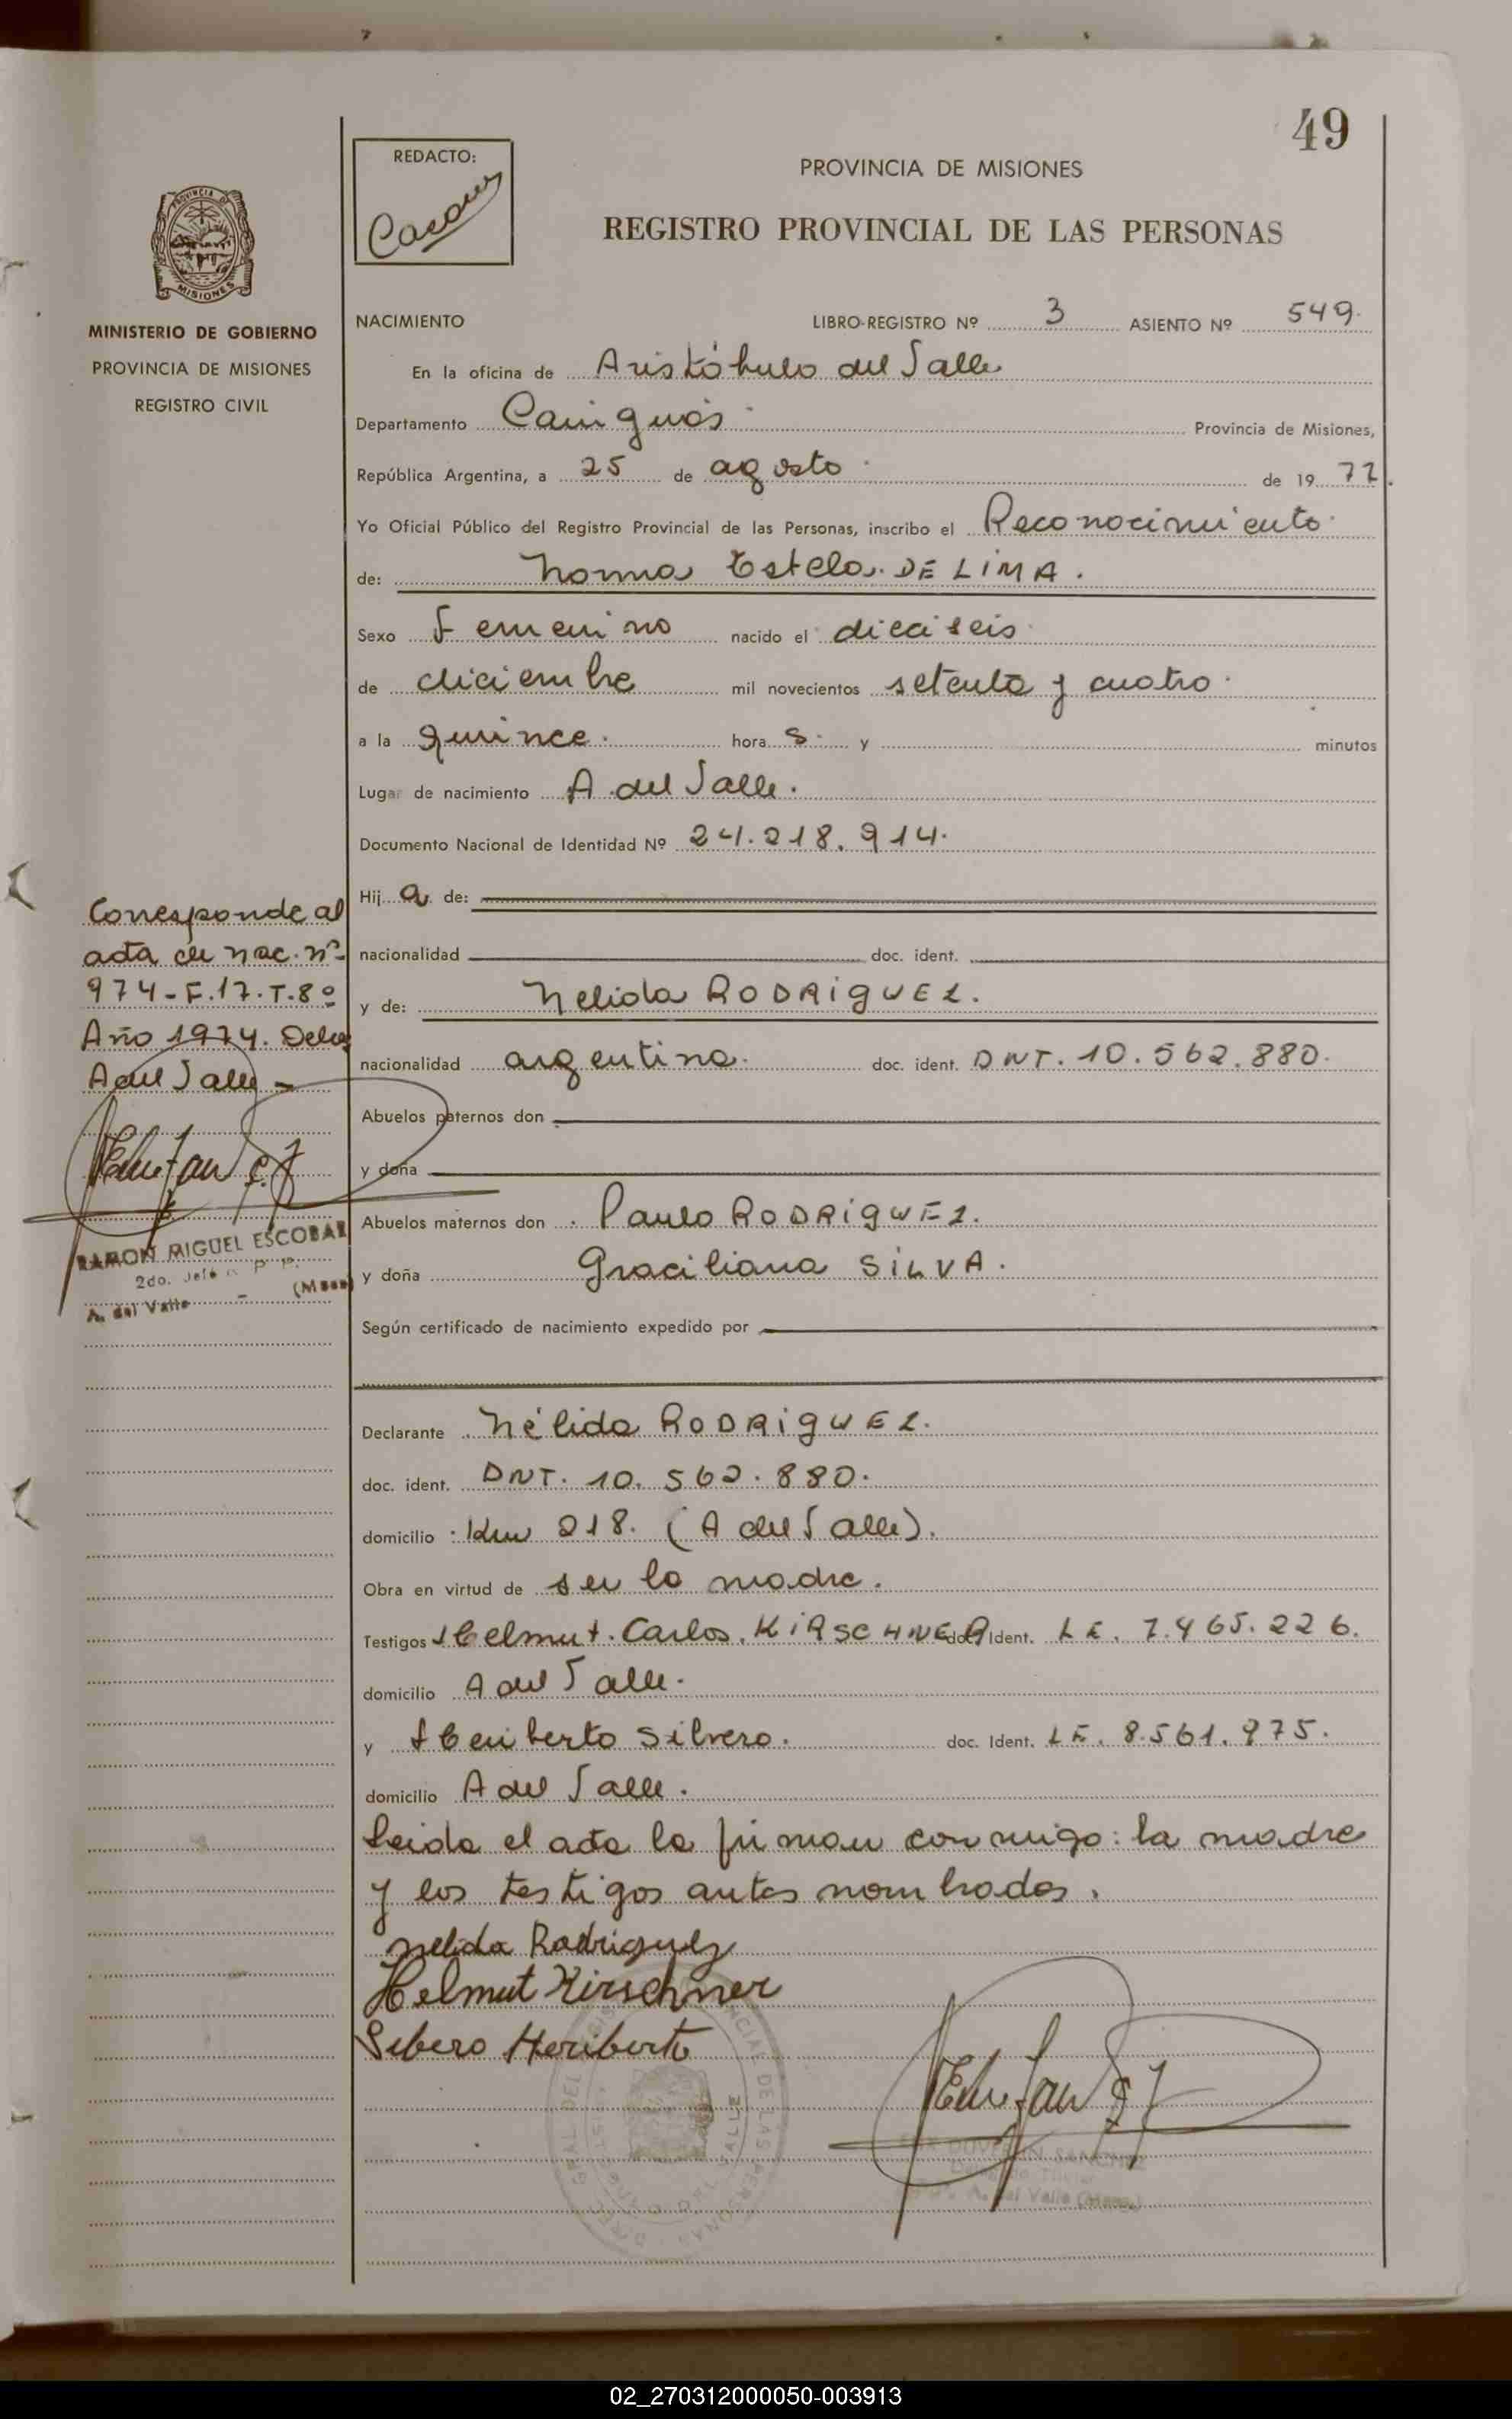 49
REDACTO:
PROVINCIA DE MISIONES
REGISTRO PROVINCIAL DE LAS PERSONAS
MINISTERIO DE GOBIERNO
PROVINCIA DE MISIONES
REGISTRO CIVIL
NACIMIENTO LIBRO-REGISTRO Nº 3 ASIENTO Nº 549.
En la oficina de Aristóbulo del Valle
Departamento Cainguás. Provincia de Misiones,
República Argentina, a 25 de agosto. de 19 77.
Yo Oficial Público del Registro Provincial de las Personas, inscribo el Reconocimiento.
de: Norma Estela. DE LIMA.
Sexo Femenino nacido el dieciseis
de diciembre mil novecientos setenta y cuatro.
a la quince. hora s. y minutos
Lugar de nacimiento A. del Valle.
Documento Nacional de Identidad Nº 24.218.914.
Hij a de:
nacionalidad doc. ident.
y de: Nelida RODRIGUEZ.
nacionalidad argentina. doc. ident. DNT. 10.562.880.
Abuelos paternos don
y doña
Abuelos maternos don Paulo RODRIGUEZ.
y doña Graciliana SILVA.
Según certificado de nacimiento expedido por
Corresponde al
acta de nac. nº
974-F.17.T.8º
Año 1974. Deleg
A del Valle -
RAMON MIGUEL ESCOBAR
2do. Jefe
A. del Valle - (Mnes)
Declarante Nélida RODRIGUEZ.
doc. ident. DNT. 10.562.880.
domicilio : Km 218. (A del Valle).
Obra en virtud de ser la madre.
Testigos Helmut. Carlos. KIRSCHNER doc. Ident. LE. 7.465.226.
domicilio A del Valle.
y Heriberto Silvero. doc. Ident. LE. 8.561.975.
domicilio A del Valle.
Leida el acta la firman conmigo: la madre
y los testigos antes nombrados.
Nelida Rodriguez
Helmut Kirschner
Silbero Heriberto